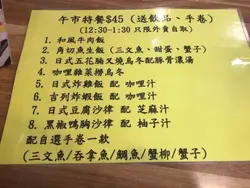 午市特餐$45 (送飲品、手卷)
(12:30-1:30 只限外賣自取)
1. 和風牛肉飯
2. 角切魚生飯 (三文魚、甜蛋、蟹子)
3. 日式五花腩叉燒烏冬配豚骨濃湯
4. 咖哩雜菜撈烏冬
5. 日式炸雞飯 配 咖哩汁
6. 吉列炸蝦飯 配 咖哩汁
7. 日式豆腐沙律 配 芝麻汁
8. 黑椒鴨胸沙律 配 柚子汁
配自選手卷一款
(三文魚/吞拿魚/鯛魚/蟹柳/蟹子)